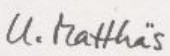 U. Matthäs